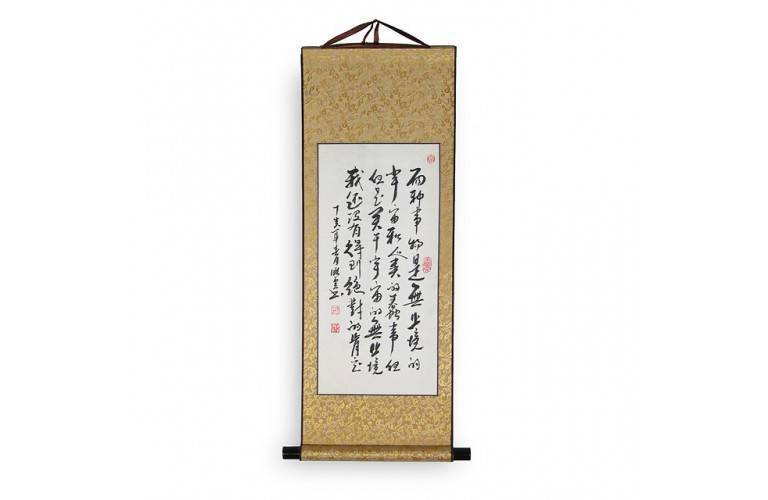 两种事物是無止境的
宇宙和人类的愚蠢
但是关于宇宙的無止境
我还没有得到絕對的肯定
丁亥年春月